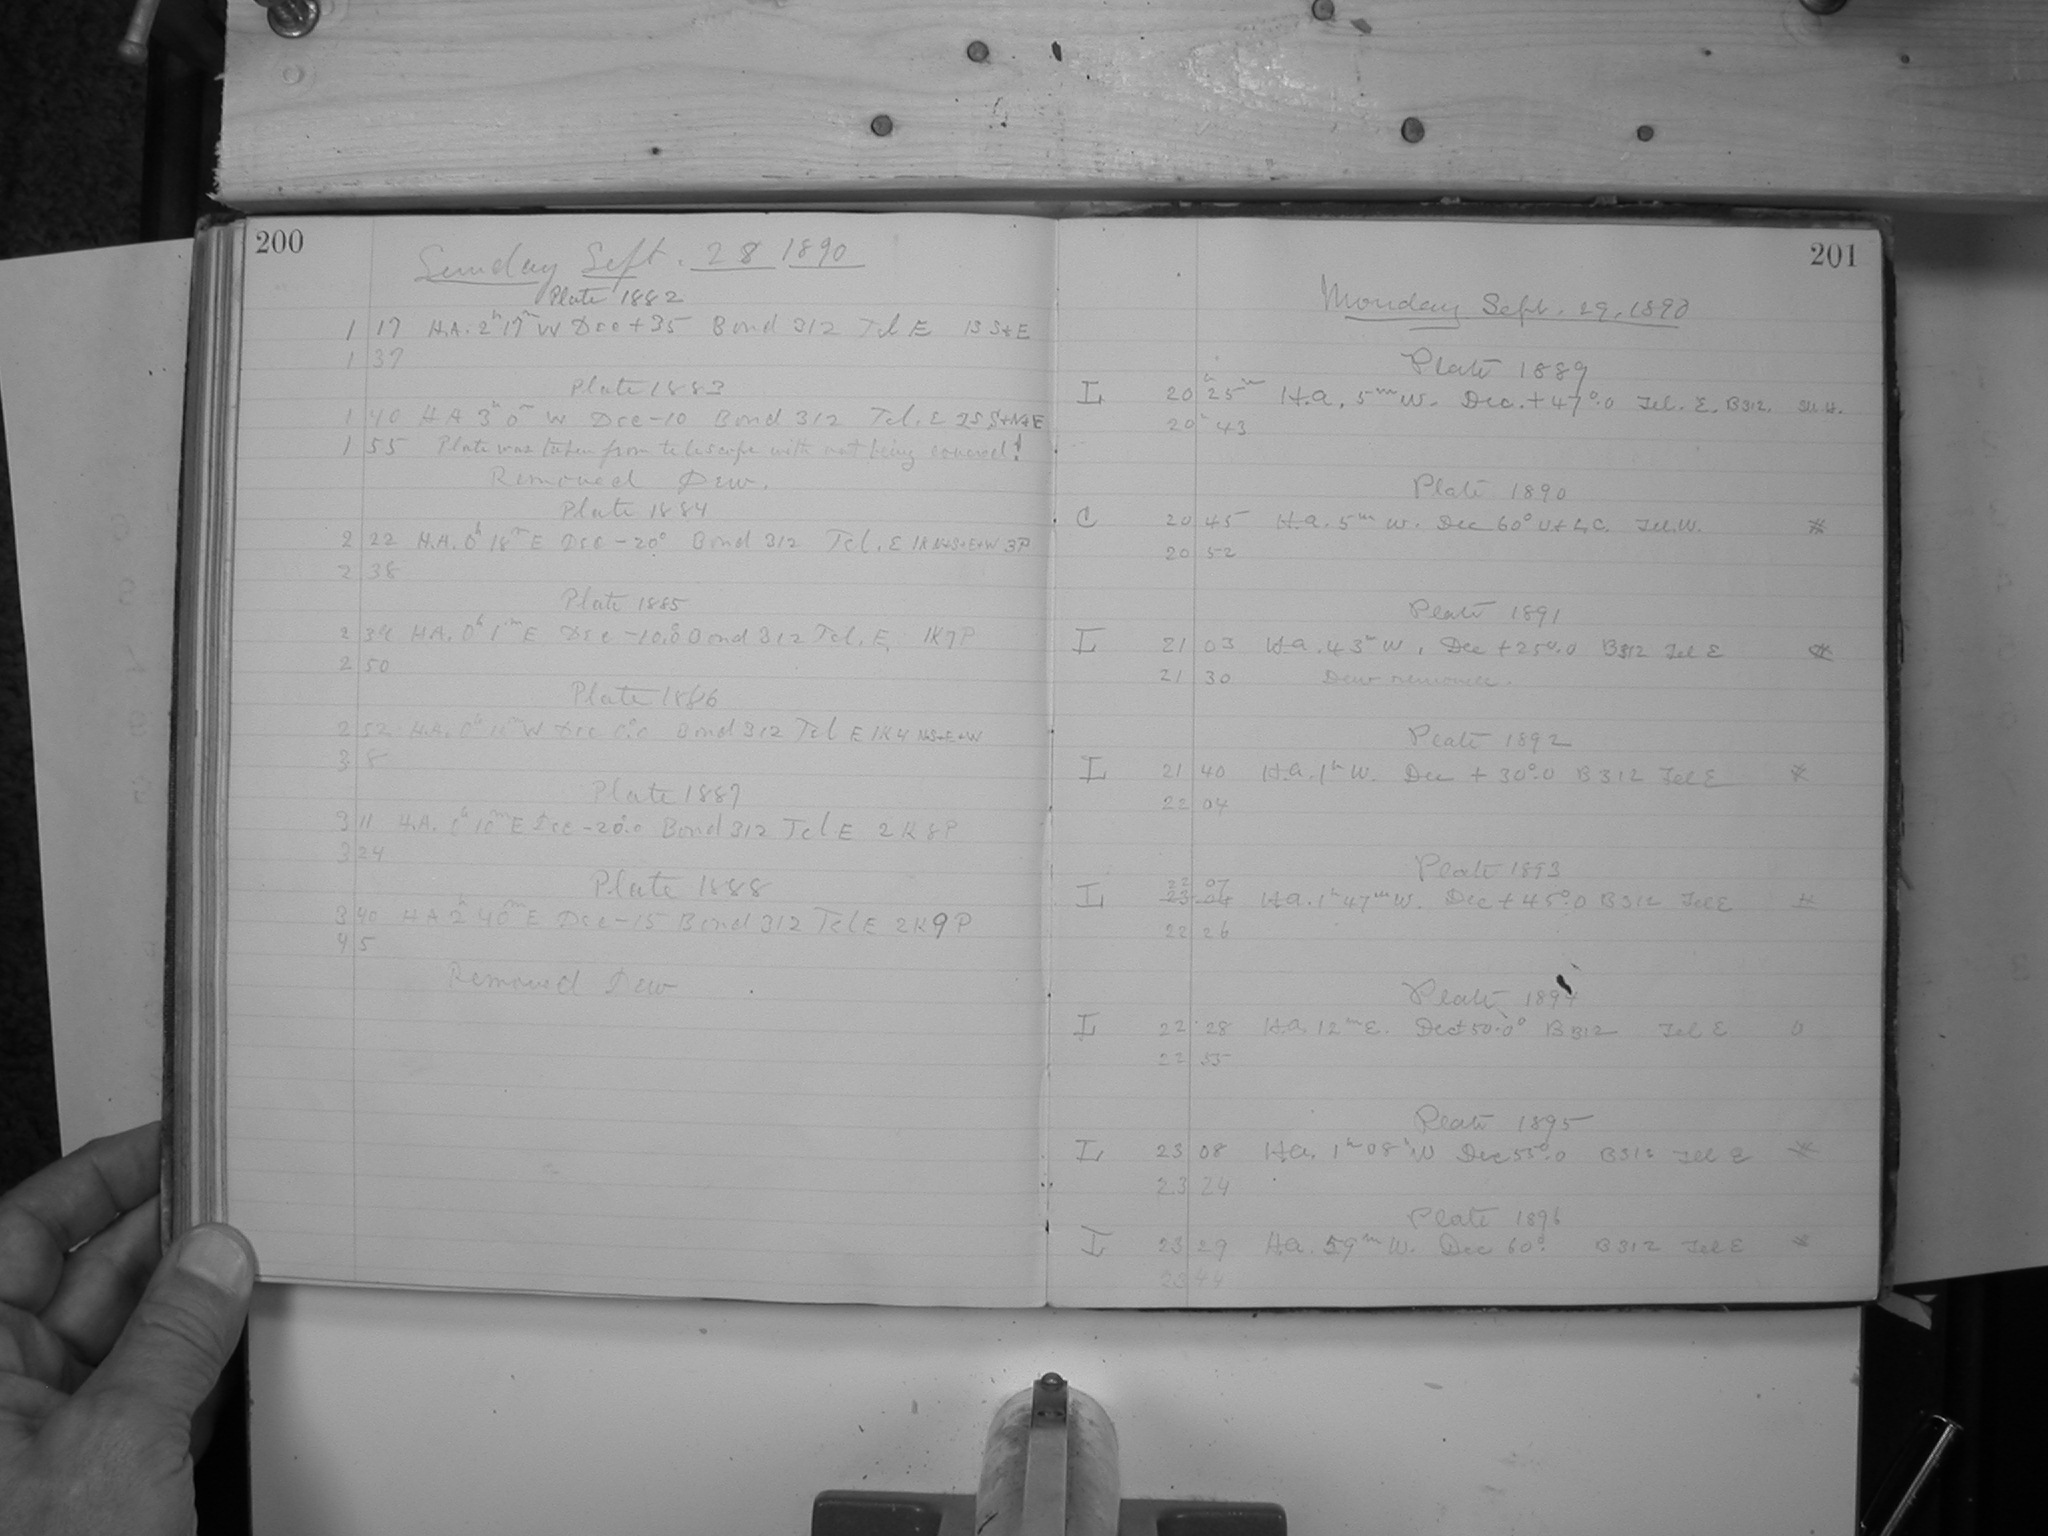 200
Sunday Sept. 28 1890
Plate 1882
1 17 H.A. 2h 17m W Dec + 35 Bond 312 Tel E 1S S+E
1 37
Plate 1883
1 40 HA 3h 0m W Dec -10 Bond 312 Tel. E 2S S+N+E
1 55 Plate was taken from telescope with not being covered!
Removed Dew.
Plate 1884
2 22 H.A. 0h 18m E Dec -20° Bond 312 Tel. E 1K N+S+E+W 3P
2 38
Plate 1885
2 39 H.A. 0h 1m E Dec -10.0 Bond 312 Tel. E, 1K 7P
2 50
Plate 1886
2 52 H.A. 0h W Dec 0°.0 Bond 312 Tel E 1K4 N+S+E+W
3 8
Plate 1887
3 11 H.A. 0h 10m E Dec -20.0 Bond 312 Tel E 2K 8P
3 24
Plate 1888
3 40 HA 2h 40m E Dec -15 Bond 312 Tel E 2K 9P
4 5
Removed Dew
201
Monday Sept. 29, 1890
Plate 1889
I 20h 25m H.a. 5m W. Dec. + 47°.0 Tel. E. B312.
20h 43
Plate 1890
C 20 45 H.a. 5m W. Dec 60° U+L,C. Tel. W. *
20 52
Plate 1891
I 21 03 Ha. 43m W, Dec +25°.0 B312 Tel E *
21 30 Dew removed.
Plate 1892
I 21 40 H.a. 1h W. Dec + 30°.0 B312 Tel E *
22 04
Plate 1893
22 07
I 23 04 Ha. 1h 47m W. Dec + 45°.0 B312 Tel E *
22 26
Plate 1894
I 22 28 Ha. 12m E. Dec + 50.0° B312 Tel E 0
22 55
Plate 1895
I 23 08 Ha. 1h 08m W Dec 55°.0 B312 Tel E *
23 24
Plate 1896
I 23 29 Ha. 59m W. Dec 60° B312 Tel E *
23 44